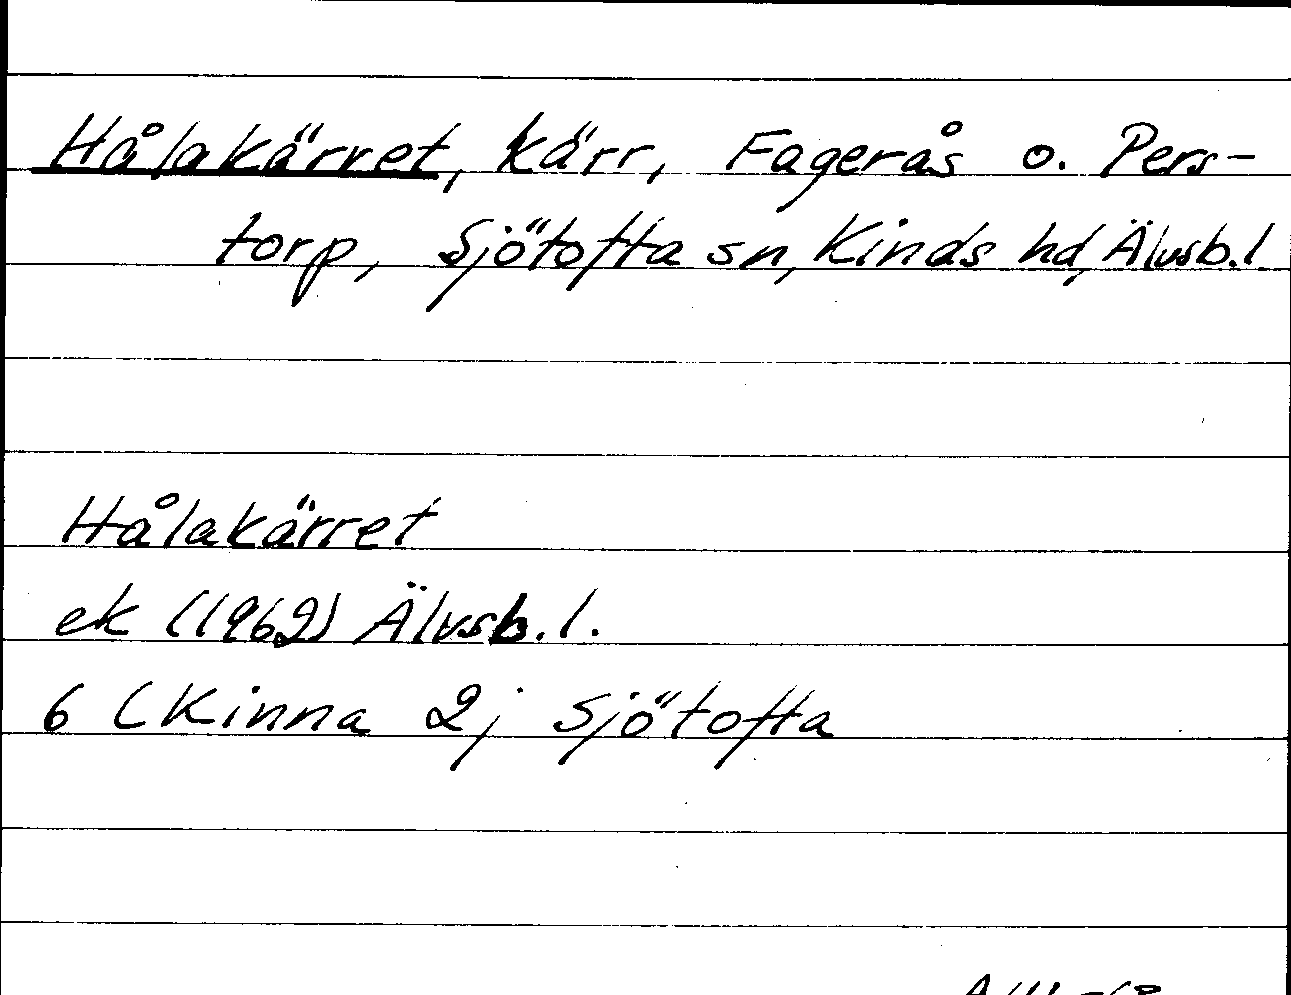 Hålakärret, kärr, Fagerås o. Pers-
torp, Sjötofta sn, Kinds hd, Älvsb.l.
Hålakärret
ek (1962) Älvsb.l.
6 (Kinna 2j Sjötofta